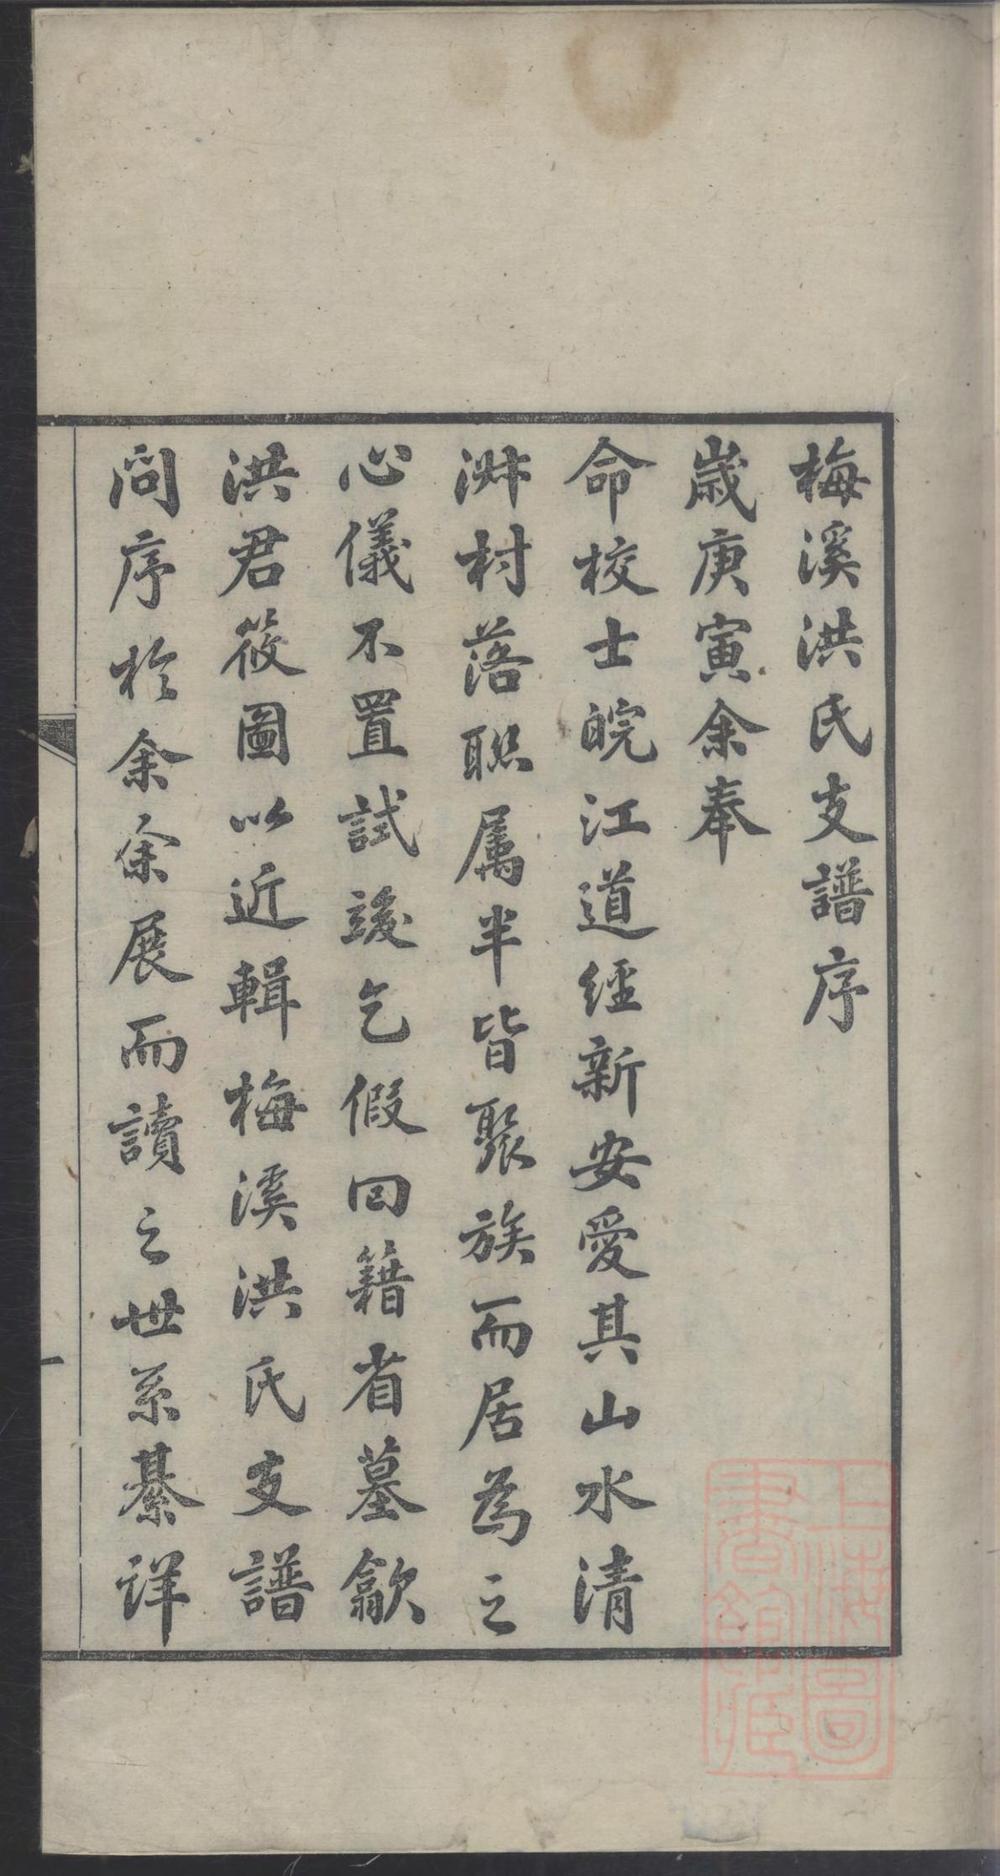 梅溪洪氏支譜序
歲庚寅余奉
命校士皖江道經新安愛其山水清
淑村落聯属半皆聚族而居為之
心儀不置試竣乞假回籍省墓歙
洪君筱圖以近輯梅溪洪氏支譜
問序於余余展而讀之世系綦详
上海圖
書館藏